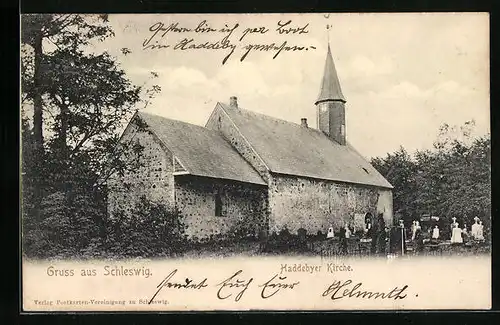 Gestern bin ich per Boot
in Haddeby gewesen.
Gruss aus Schleswig.
Haddebyer Kirche.
sendet Euch Euer Helmuth.
Verlag Postkarten-Vereinigung zu Schleswig.